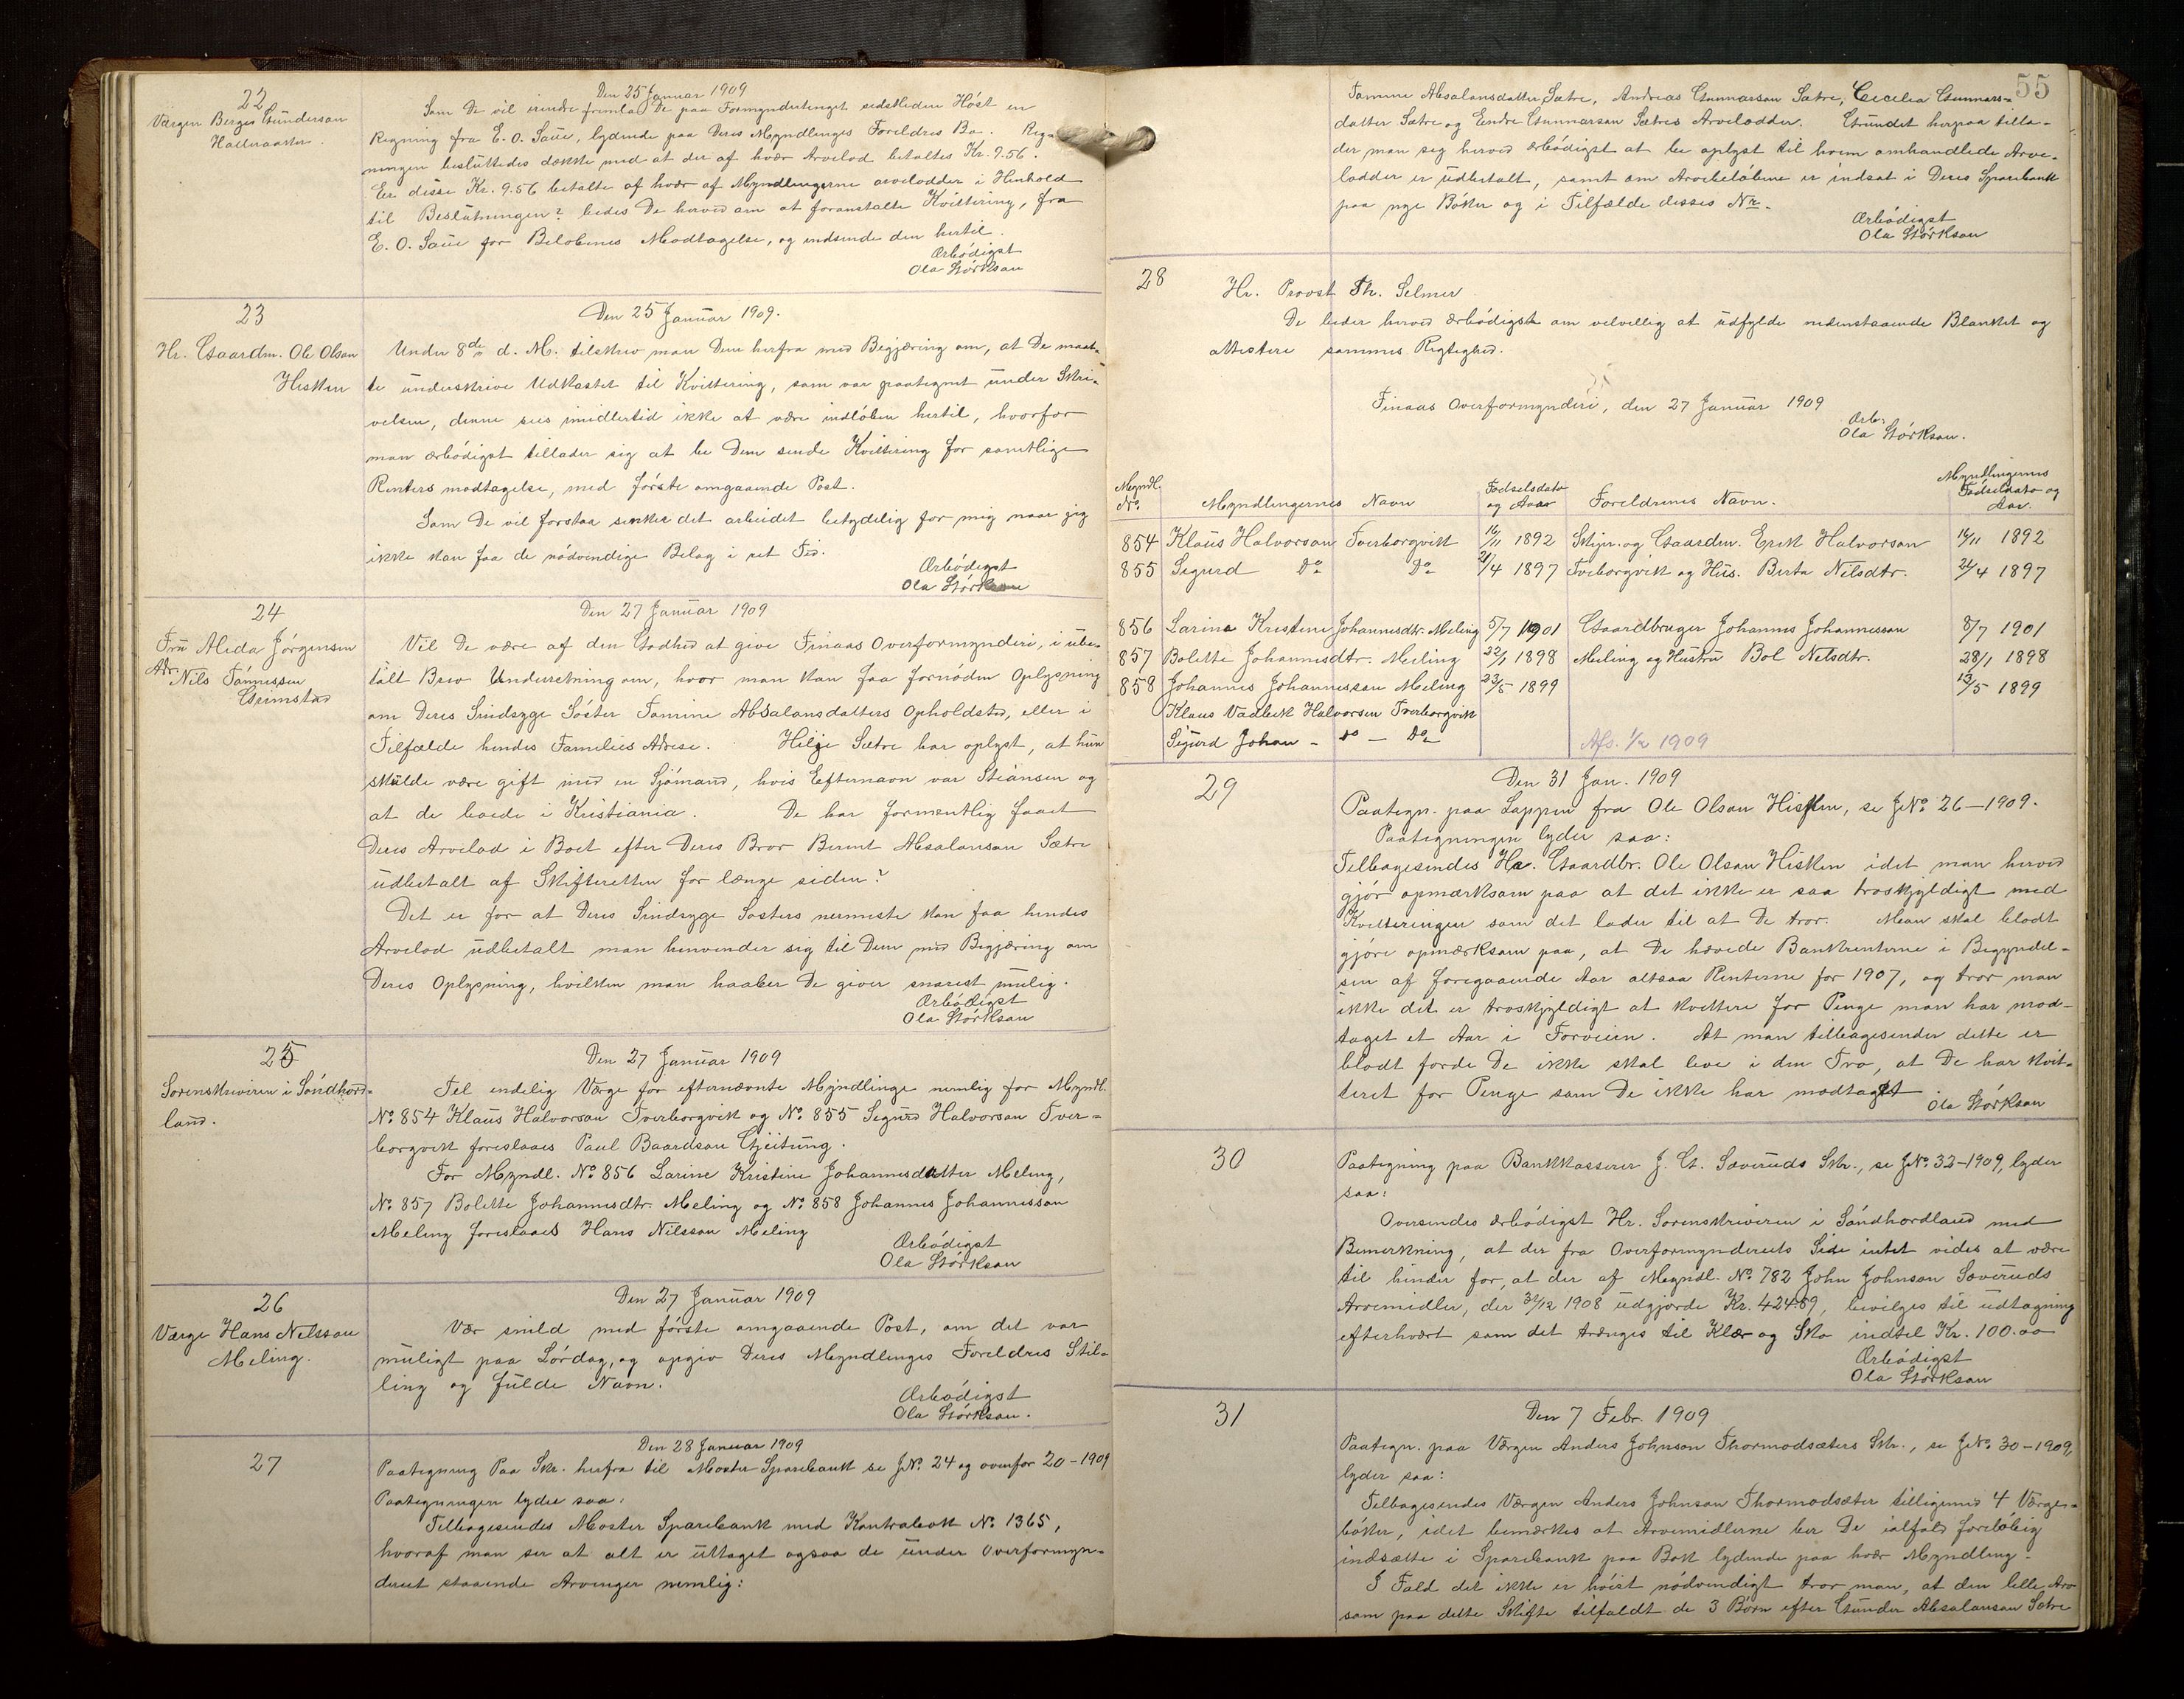 22
Værgen Berges Gunderson
Den 25 Januar 1909
Som De vil erindre fremla De paa Formynderthinget sidstleden Höst en
Regning fra E. O. Saue, lydende paa Deres Myndlinges Foreldres Bo. Reg-
ningen besluttedes dække med at der af hvær Arvelod betaltes Kr. 9.56.
Er disse Kr. 9.56 betalte af hvær af Myndlingerne arvelodder i Henhold
til Beslutningen? bedes De herved om at foranstalte Kvittering, fra
E. O. Saue for Belobenes Modtagelse, og indsende den hertil.
Ærbödigst
Ola Störkson
23
Hr. Gaardm. Ole Olson
Hisken
Den 25 Januar 1909.
Under 8de d. M. tilskrev man Dem herfra med Begjæring om, at De maat-
te underskrive Udkastet til Kvittering, som var paategnet under Skri-
velsen, denne sees imidlertid ikke at være indlöben hertil, hvorfor
man ærbödigst tillader sig at be Dem sende Kvittering for samtlige
Renters modtagelse, med förste omgaaende Post.
Som De vil forstaa sinker det arbeidet betydelig for mig naar jeg
ikke kan faa de nödvendige Belag i ret Tid.
Ærbödigst
Ola Störkson
24
Fru Alida Jörgensen
Adr. Nils Tönnessen
Grimstad
Den 27 Januar 1909
Vil De være af den Godhed at give Finaas Overformynderi, i ube-
talt Brev Underretning om, hvor man kan faa fornöden Oplysning
om Deres Sindsyge Söster Tomine Absalonsdatters Opholdsted, eller i
Tilfælde hendes Families Adrese. Helje Sætre har oplyst, at hun
skulde være gift med en Sjömand, hvis Efternavn var Stiansen og
at de boede i Kristiania. De har formentlig faaet
Deres Arvelod i Boet efter Deres Bror Bernt Absalonson Sætre
udbetalt af Skifteretten for længe siden?
Det er for at Deres Sindsyge Sosters nermeste kan faa hendes
Arvelod udbetalt man henvender sig til Dem med Bigjæring om
Deres Oplysning, hvilken man haaber De giver snarest mulig.
Ærbödigst
Ola Störkson
25
Sorenskriveren i Söndhord-
land.
Den 27 Januar 1909
Tel endelig Værge for efternævnte Myndlinge nemlig for Myndl.
No 854 Klaus Halvorson Tverborgvik og No 855 Sigurd Halvorson Tver-
borgvik foreslaaes Paul Baardson Gjeitung.
For Myndl. No 856 Larine Kristine Johannesdatter Meling,
No 857 Bolette Johannesdtr. Meling og No 858 Johannes Johannesson
Meling foreslaaes Hans Nilsson Meling
Ærbödigst
Ola Störkson
26
Værge Hans Nelsson
Meling.
Den 27 Januar 1909
Vær snild med förste omgaaende Post, om det var
muligt paa Lördag, og opgiv Deres Myndlinges Foreldres Stil-
ling og fulde Navn.
Ærbödigst
Ola Störkson.
27
Den 28 Januar 1909
Paategning Paa Skr. herfra til Moster Sparebank se JNo. 24 og ovenfor 20-1909
Paategningen lyder saa:
Tilbagesendes Moster Sparebank med Kontrabok No 1365,
hvoraf man ser at alt er uttaget ogsaa de under Overformyn-
deriet staaende Arvinger nemlig:
55
Tomine Absalonsdatter Sætre, Andreas Gunnarson Sætre, Cecelia Gunnars-
datter Sætre og Endre Gunnarson Sætres Arvelodder. Grundet herpaa tilla-
der man seg herved ærbödigst at be oplyst til hvem omhandlede Arve-
lodder er udbetalt, samt om Arvebelöbene er indsat i Deres Sparebank
paa nye Böker og i Tilfælde disses Nr.
Ærbödigst
Ola Störkson
28
Hr. Provst Th. Selmer
De beder herved ærbödigst om velvillig at udfylde nedenstaaende Blanket og
attestere sammes Rigtighed.
Finaas Overformynderi, den 27 Januar 1909
Ærb.
Ola Störkson.
Myndl. No. Myndlingernes Navn Fodselsdato og Aar Foreldrenes Navn. Myndlingernes Födselsdato og Aar.
854 Klaus Halvorson Tverborgvik 16/11 1892 Skipr. og Gaardm. Erik Halvorson 16/11 1892
855 Sigurd Do Do 21/4 1897 Tverborgvik og Hus. Berta Nilsdtr. 21/4 1897
856 Larine Kristine Johannesdtr. Meling 5/7 1901 Gaardbruger Johannes Johannesson 8/7 1901
857 Bolette Johannesdtr. Meling 22/1 1898 Meling og Hustru Bol Nelsdtr. 28/1 1898
858 Johannes Johannesson Meling 23/5 1899 13/5 1899
Klaus Vadbek Halvorsen Tverborgvik
Sigurd Johan - Do - Do
Afs. 1/2 1909
29
Den 31 Jan. 1909
Paategn. paa Lappen fra Ole Olson Hisken, se JNo. 26-1909.
Paategningen lyder saa:
Telbagesendes Hr. Gaardbr. Ole Olson Hisken idet man herved
gjör opmærksom paa at det ikke er saa troskyldigt med
Kvitteringen som det lader til at De tror. Man skal blodt
gjöre opmærksom paa, at De hævede Bankrenterne i Begyndel-
sen af foregaaende Aar altsaa Renterne for 1907, og tror man
ikke det er troskyldigt at kvittere for Penge man har mod-
taget et Aar i Forveien. At man tilbagesender dette er
blodt forde De ikke skal leve i den Tro, at De har kvit-
teret for Penge som De ikke har modtaget.
Ola Störkson
30
Paategning paa Bankkasserer J. G. Sæveruds Skr., se JNo. 32-1909, lyder
saa:
Oversendes ærbödigst Hr. Sorenskriveren i Söndhordland med
Bemerkning, at der fra Overformynderiets Side intet vides at være
til hinder for, at der af Myndl. No 782 John Johnson Sæveruds
Arvemidler, der 31/12 1908 udgjorde Kr. 424.59, bevilges til udtagning
efterhvert som det trænges til Klær og Sko indtil Kr. 100.00
Ærbödigst
Ola Störkson
31
Den 7 Febr. 1909
Paategn. paa Værgen Anders Johnson Thormodsæters Skr., se JNo. 30-1909,
lyder saa:
Telbagesendes Værgen Anders Johnson Thormodsæter tilligemed 4 Værge-
böker, idet bemærkes at Arvemidlerne bør De ialfald foreløbig
indsætte i Sparebank paa Bok lydende paa hvær Myndling.
I Fald det ikke er höist nödvendigt tror man, at den lille Arv
som paa dette Skifte tilfaldt de 3 Börn efter Gunder Absalonson Sætre